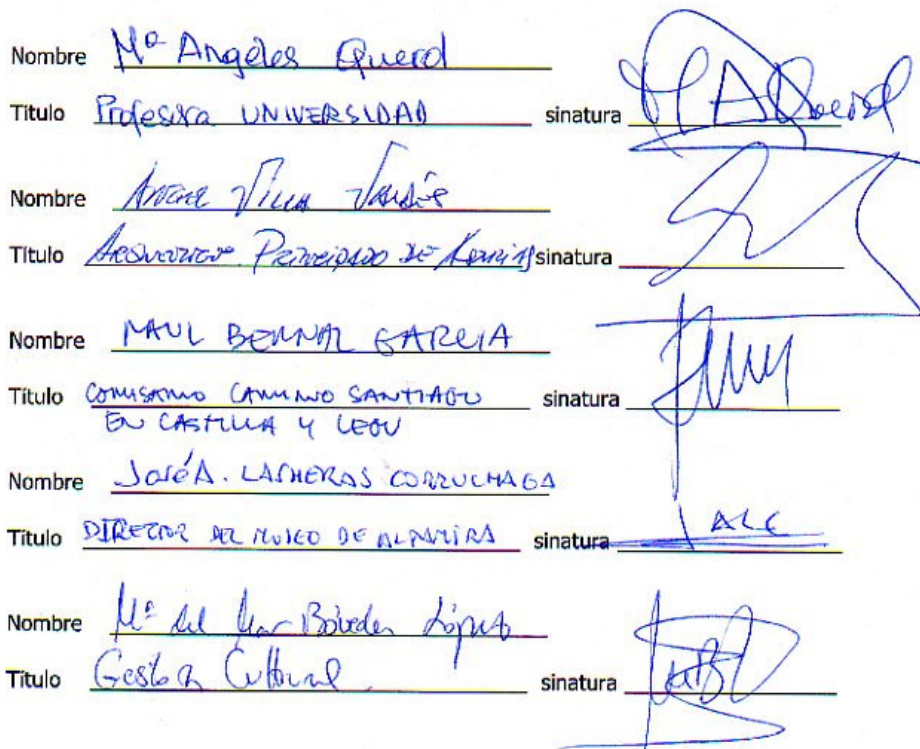 Nombre Mª Angeles Querol
Título Profesora UNIVERSIDAD sinatura MAQuerol
Nombre Angel Villa Valdés
Título Arqueólogo. Principado de Asturias sinatura
Nombre RAUL BERNAL GARCIA
Título COMISARIO CAMINO SANTIAGO sinatura
EN CASTILLA Y LEON
Nombre José A. LASHERAS CORRUCHAGA
Título DIRECTOR DEL MUSEO DE ALTAMIRA sinatura JALC
Nombre Mª del Mar Bóveda López
Título Gestora Cultural sinatura